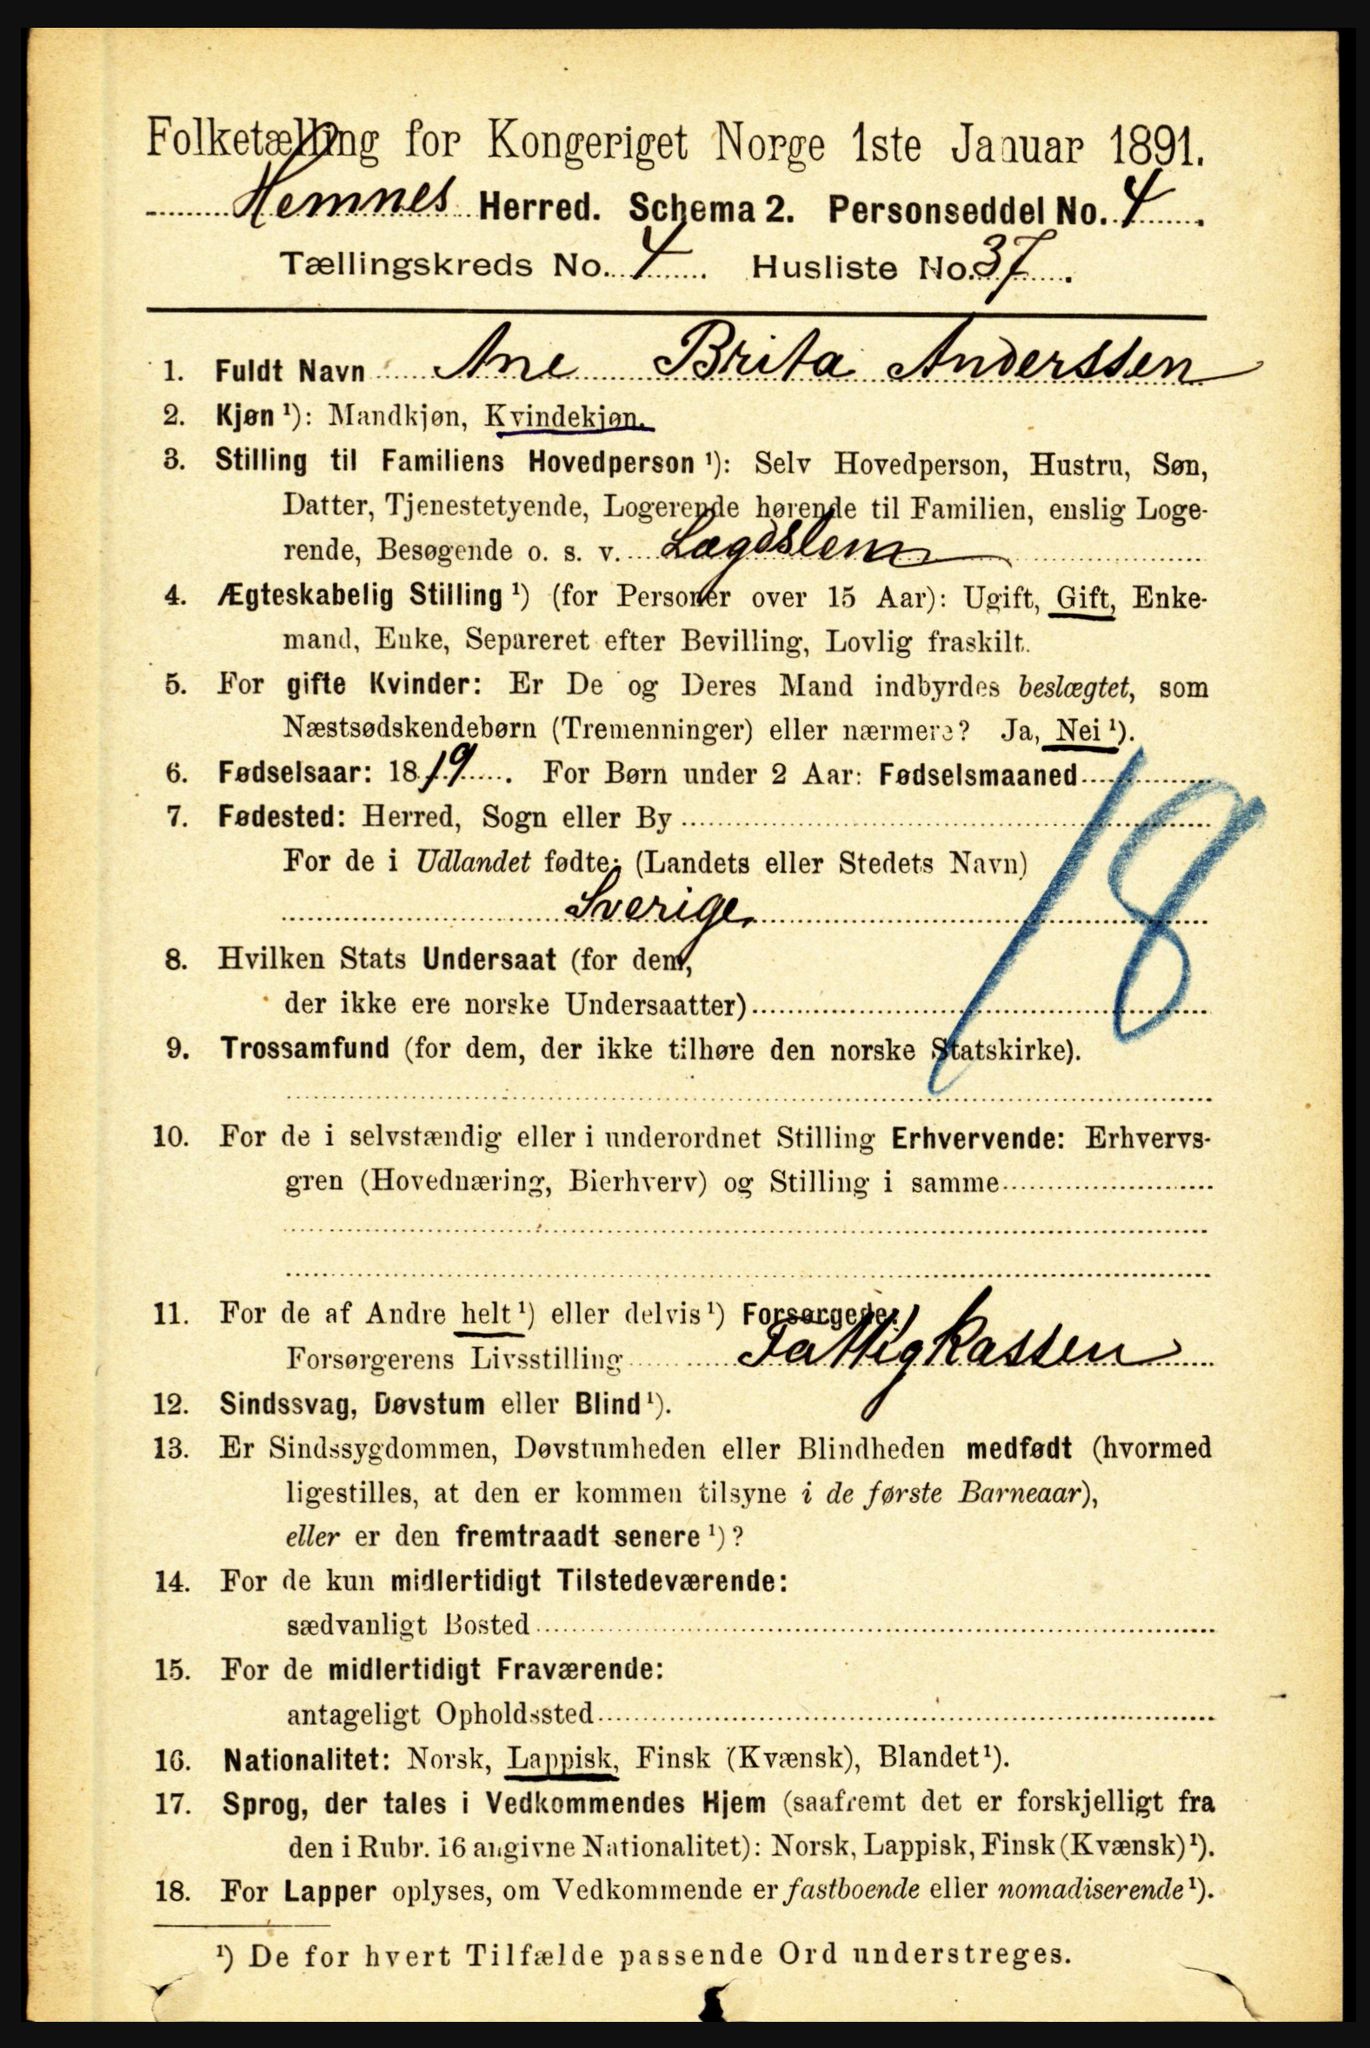 Folketælling for Kongeriget Norge 1ste Januar 1891.
Hemnes Herred. Schema 2. Personseddel No. 4.
Tællingskreds No. 4. Husliste No. 37.
1. Fuldt Navn Ane Brita Anderssen
2. Kjøn ¹): Mandkjøn, Kvindekjøn.
3. Stilling til Familiens Hovedperson ¹): Selv Hovedperson, Hustru, Søn,
Datter, Tjenestetyende, Logerende hørende til Familien, enslig Loge-
rende, Besøgende o. s. v. Lægdslem
4. Ægteskabelig Stilling ¹) (for Personer over 15 Aar): Ugift, Gift, Enke-
mand, Enke, Separeret efter Bevilling, Lovlig fraskilt.
5. For gifte Kvinder: Er De og Deres Mand indbyrdes beslægtet, som
Næstsødskendebørn (Tremenninger) eller nærmere? Ja, Nei ¹).
6. Fødselsaar: 1819. For Børn under 2 Aar: Fødselsmaaned
7. Fødested: Herred, Sogn eller By
For de i Udlandet fødte: (Landets eller Stedets Navn)
Sverige
18
8. Hvilken Stats Undersaat (for dem,
der ikke ere norske Undersaatter)
9. Trossamfund (for dem, der ikke tilhøre den norske Statskirke).
10. For de i selvstændig eller i underordnet Stilling Erhvervende: Erhvervs-
gren (Hovednæring, Bierhverv) og Stilling i samme
11. For de af Andre helt ¹) eller delvis ¹) Forsørgede:
Forsørgerens Livsstilling Fattigkassen
12. Sindssvag, Døvstum eller Blind ¹).
13. Er Sindssygdommen, Døvstumheden eller Blindheden medfødt (hvormed
ligestilles, at den er kommen tilsyne i de første Barneaar),
eller er den fremtraadt senere ¹)?
14. For de kun midlertidigt Tilstedeværende:
sædvanligt Bosted
15. For de midlertidigt Fraværende:
antageligt Opholdssted
16. Nationalitet: Norsk, Lappisk, Finsk (Kvænsk), Blandet ¹).
17. Sprog, der tales i Vedkommendes Hjem (saafremt det er forskjelligt fra
den i Rubr. 16 angivne Nationalitet): Norsk, Lappisk, Finsk (Kvænsk) ¹).
18. For Lapper oplyses, om Vedkommende er fastboende eller nomadiserende ¹).
¹) De for hvert Tilfælde passende Ord understreges.